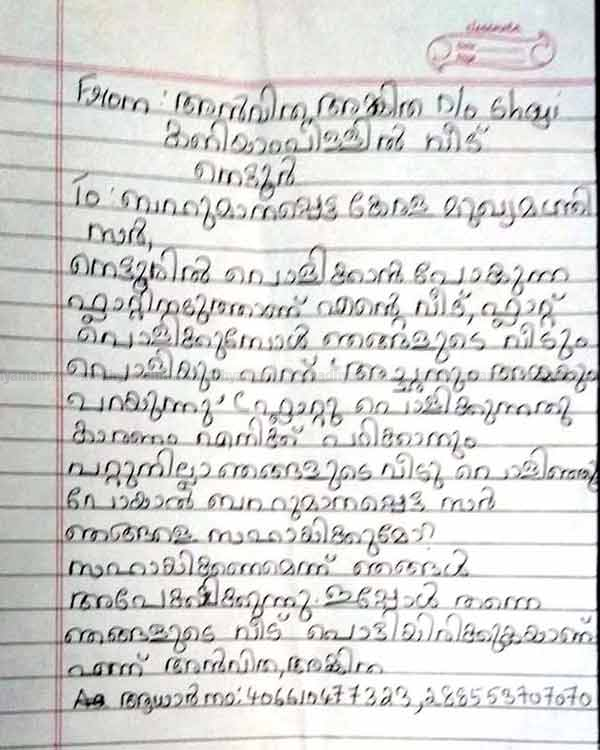 classmate
Date
Page
From : അൻവിത, അങ്കിത D/o Shaji
കണിയാംപിള്ളിൽ വീട്
നെട്ടൂർ
To : ബഹുമാനപ്പെട്ട കേരള മുഖ്യമന്ത്രി
സാർ,
നെട്ടൂരിൽ പൊളിക്കാൻ പോകുന്ന
ഫ്ലാറ്റിനടുത്താണ് എന്റെ വീട്, ഫ്ലാറ്റ്
പൊളിക്കുമ്പോൾ ഞങ്ങളുടെ വീടും
പൊളിയും എന്ന് അച്ഛനും അമ്മക്കും
പറയുന്നു ഫ്ലാറ്റു പൊളിക്കുന്നതു
കാരണം എനിക്ക് പഠിക്കാനും
പറ്റുന്നില്ലാ ഞങ്ങളുടെ വീടു പൊളിഞ്ഞു
പോകാൽ ബഹുമാനപ്പെട്ട സാർ
ഞങ്ങളെ സഹായിക്കുമോ?
സഹായിക്കണമെന്ന് ഞങ്ങൾ
അപേക്ഷിക്കുന്നു. ഇപ്പോൾ തന്നെ
ഞങ്ങളുടെ വീട് പൊളിയിരിക്കുകയാണ്
എന്ന് അൻവിത, അങ്കിത
ആധാർ നമ്പ: 406610477323, 288553707070